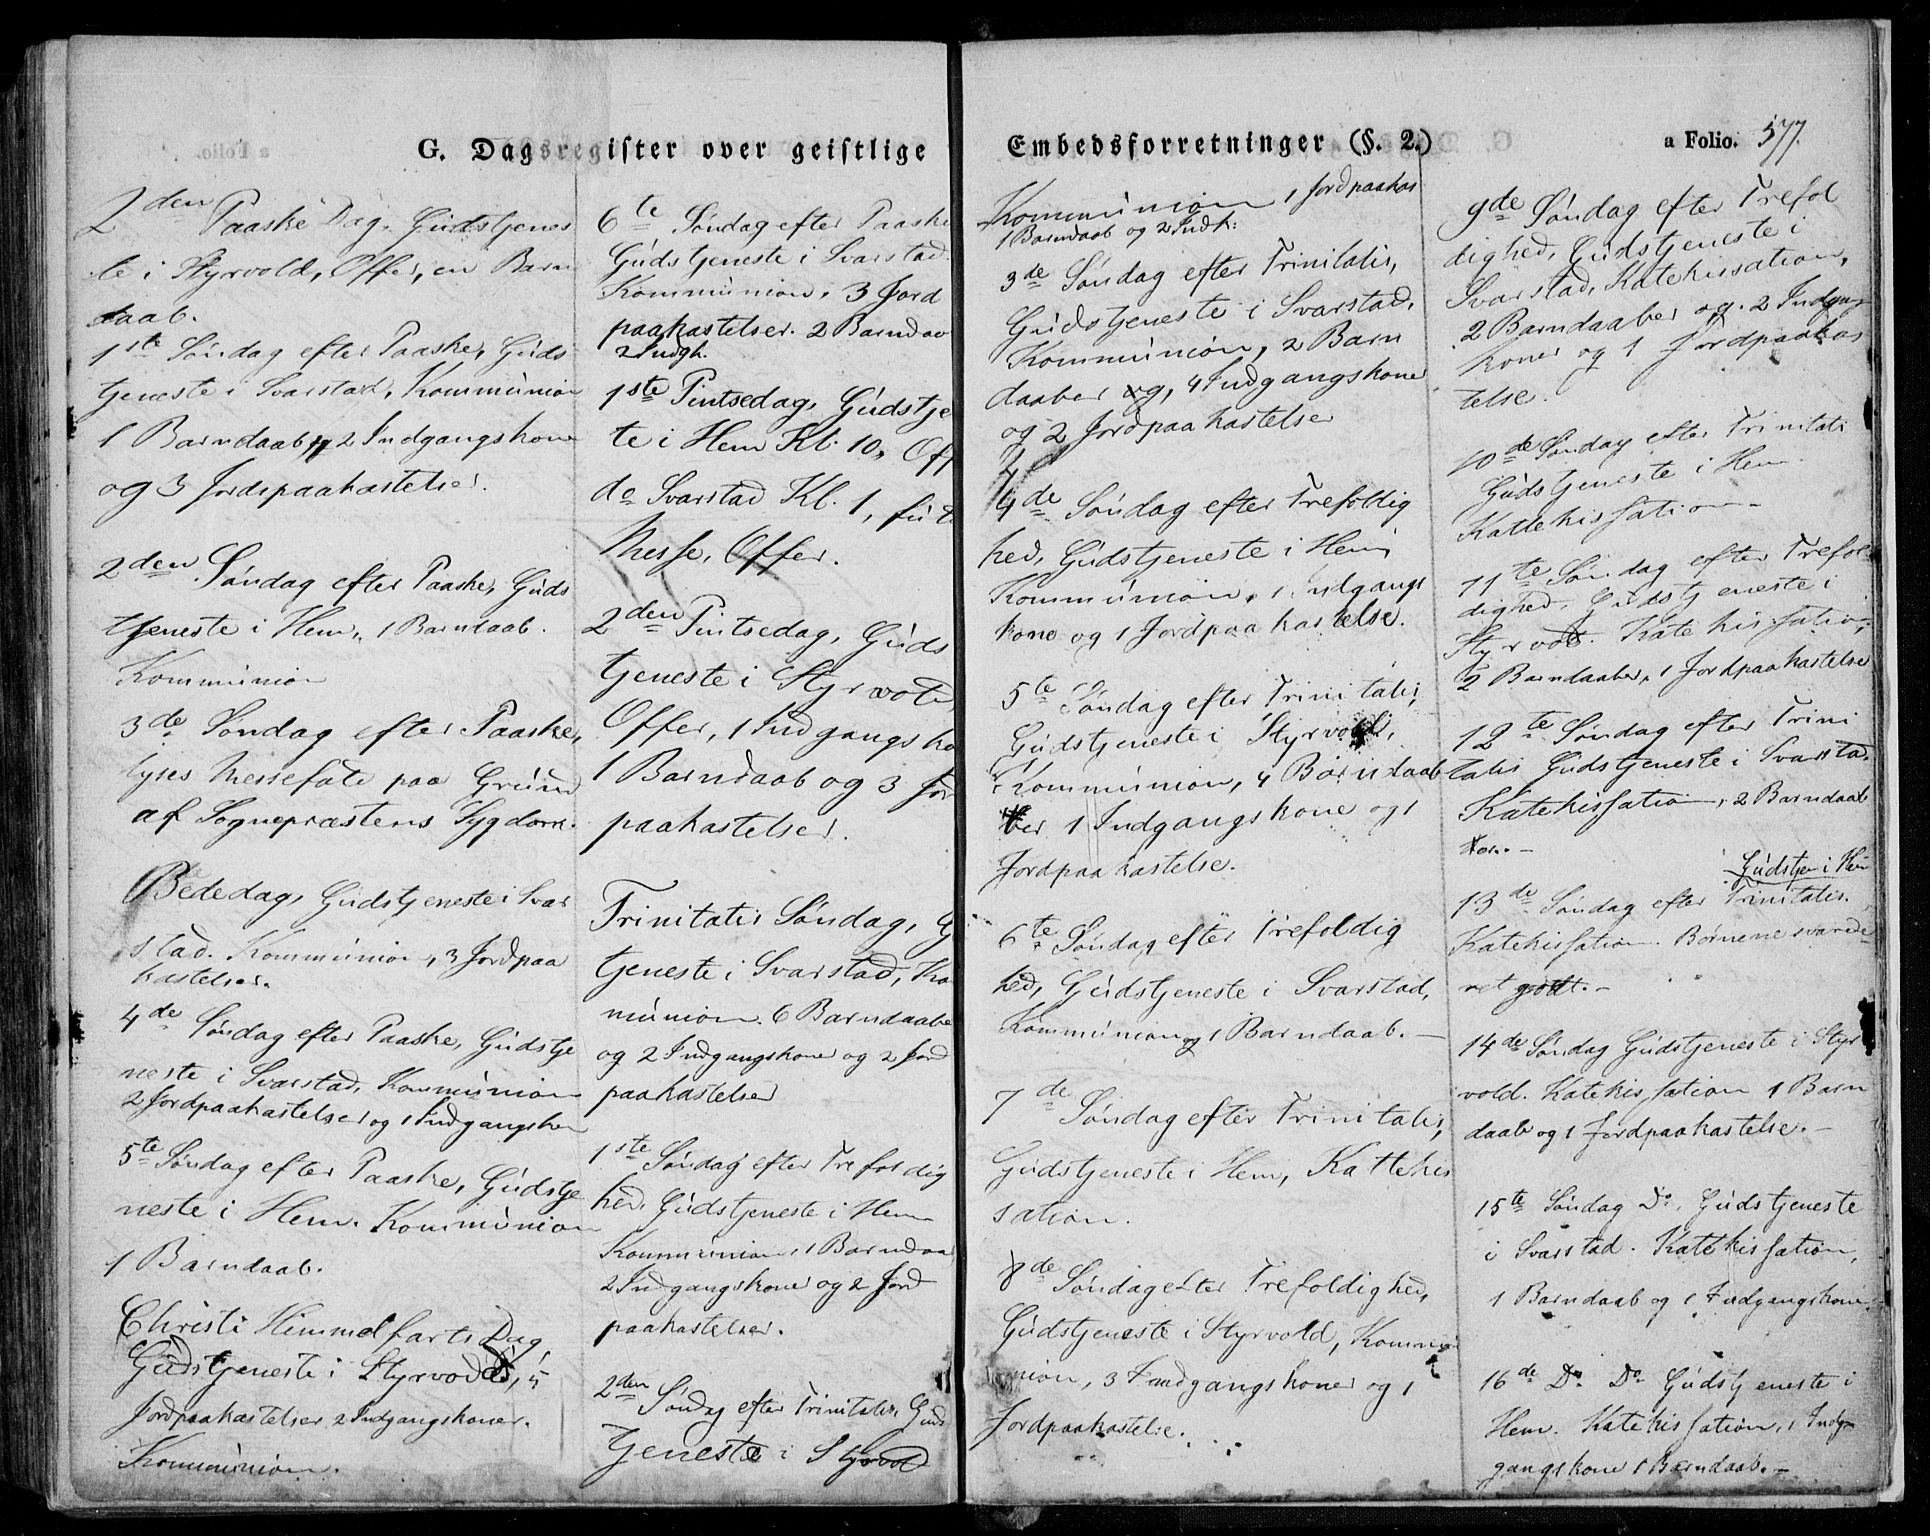 G. Dagsregister over geistlige
2den Paaske Dag, Gudstjenes
te i Styrvold, Offer, en Barn
daab.
1ste Søndag efter Paaske, Guds
tjeneste i Svarstad, Kommunion
1 Barndaab, 2 Indgangskone
og 3 Jordspaakastelser.
2den Søndag efter Paaske, Guds
tjeneste i Hem, 1 Barndaab.
Kommunion
3de Søndag efter Paaske,
lyses Messefald paa Grund
af Sognepræstens Sygdom.
Bededag, Gudstjeneste i Svar
stad. Kommunion, 3 Jordpaa
kastelser.
4de Søndag efter Paaske, Gudstje
neste i Svarstad, Kommunion
2 Jordpaakastelser og 1 Indgangskon
5te Søndag efter Paaske, Gudstje
neste i Hem. Kommunion
1 Barndaab.
Christi Himmelfarts Dag,
Gudstjeneste i Styrvold, 5
Jordpaakastelser 2 Indgangskoner.
Kommunion.
6te Søndag efter Paaske
Gudstjeneste i Svarstad.
Kommunion, 3 Jord
paakastelser. 2 Barndaa
2 Indgk.
1ste Pintsedag, Gudstje
te i Hem Kl. 10, Off
do Svarstad Kl. 1,
Messe, Offer.
2den Pintsedag, Guds
tjeneste i Styrvold,
Offer, 1 Indgangsko
1 Barndaab og 3 Jor
paakastelser.
Trinitatis Søndag, G
tjeneste i Svarstad, Ko
munion. 6 Barndaabe
og 2 Indgangskoner og 2 Jord
paakastelser
1ste Søndag efter Trefoldig
hed, Gudstjeneste i Hem
Kommunion, 1 Barndaa
2 Indgangskoner og 2 Jord
paakastelser.
2den Søndag efter Trinitatis, Guds
tjeneste i Styrvold
Embedsforretninger (§. 2.)
a Folio. 577.
Kommunion 1 Jordpaakas
1 Barndaab og 2 Indk:
3de Søndag efter Trinitatis,
Gudstjeneste i Svarstad,
Kommunion, 2 Barn
daaber og, 4 Indgangskoner
og 2 Jordpaakastelser
4de Søndag efter Trefoldig
hed, Gudstjeneste i Hem,
Kommunion, 1 Indgangs
kone og 1 Jordpaakastelse.
5te Søndag efter Trinitatis,
Gudstjeneste i Styrvold,
Kommunion, 4 Barndaab
ber 1 Indgangskone og 1
Jordpaakastelse.
6te Søndag efter Trefoldig
hed, Gudstjeneste i Svarstad,
Kommunion og 1 Barndaab. –
7de Søndag efter Trinitatis,
Gudstjeneste i Hem, Kattekis
sation.
8de Søndag efter Trefoldighed,
Gudstjeneste i Styrvold, Kommu
nion, 3 Indgangskoner og 1
Jordpaakastelse.
9de Søndag efter Trefol
dighed, Gudstjeneste i
Svarstad, Katekissation,
2 Barndaaber og 2 Indgangs
koner og 1 Jordpaakas
telse.
10de Søndag efter Trinitati
Gudstjeneste i Hem.
Kattekissation –
11te Søndag efter Trefol
dighed, Gudstjeneste i
Styrvold. Katekissation,
2 Barndaaber, 1 Jordpaakastelse
12te Søndag efter Trini
tatis Gudstjeneste i Svarstad.
Katekissation, 2 Barndaab
Gudstjen i Hem
13de Søndag efter Trinitatis.
Katekissation. Børnene svarede
ret godt. –
14de Søndag Gudstjeneste i Styr
vold. Katekissation 1 Barn
daab og 1 Jordpaakastelse. –
15te Søndag Do. Gudstjeneste
i Svarstad. Katekissation,
1 Barndaab og 1 Indgangskone.
16de Do Do Gudstjeneste i
Hem. Katekissation, 1 Indga
gangskone 1 Barndaab. –